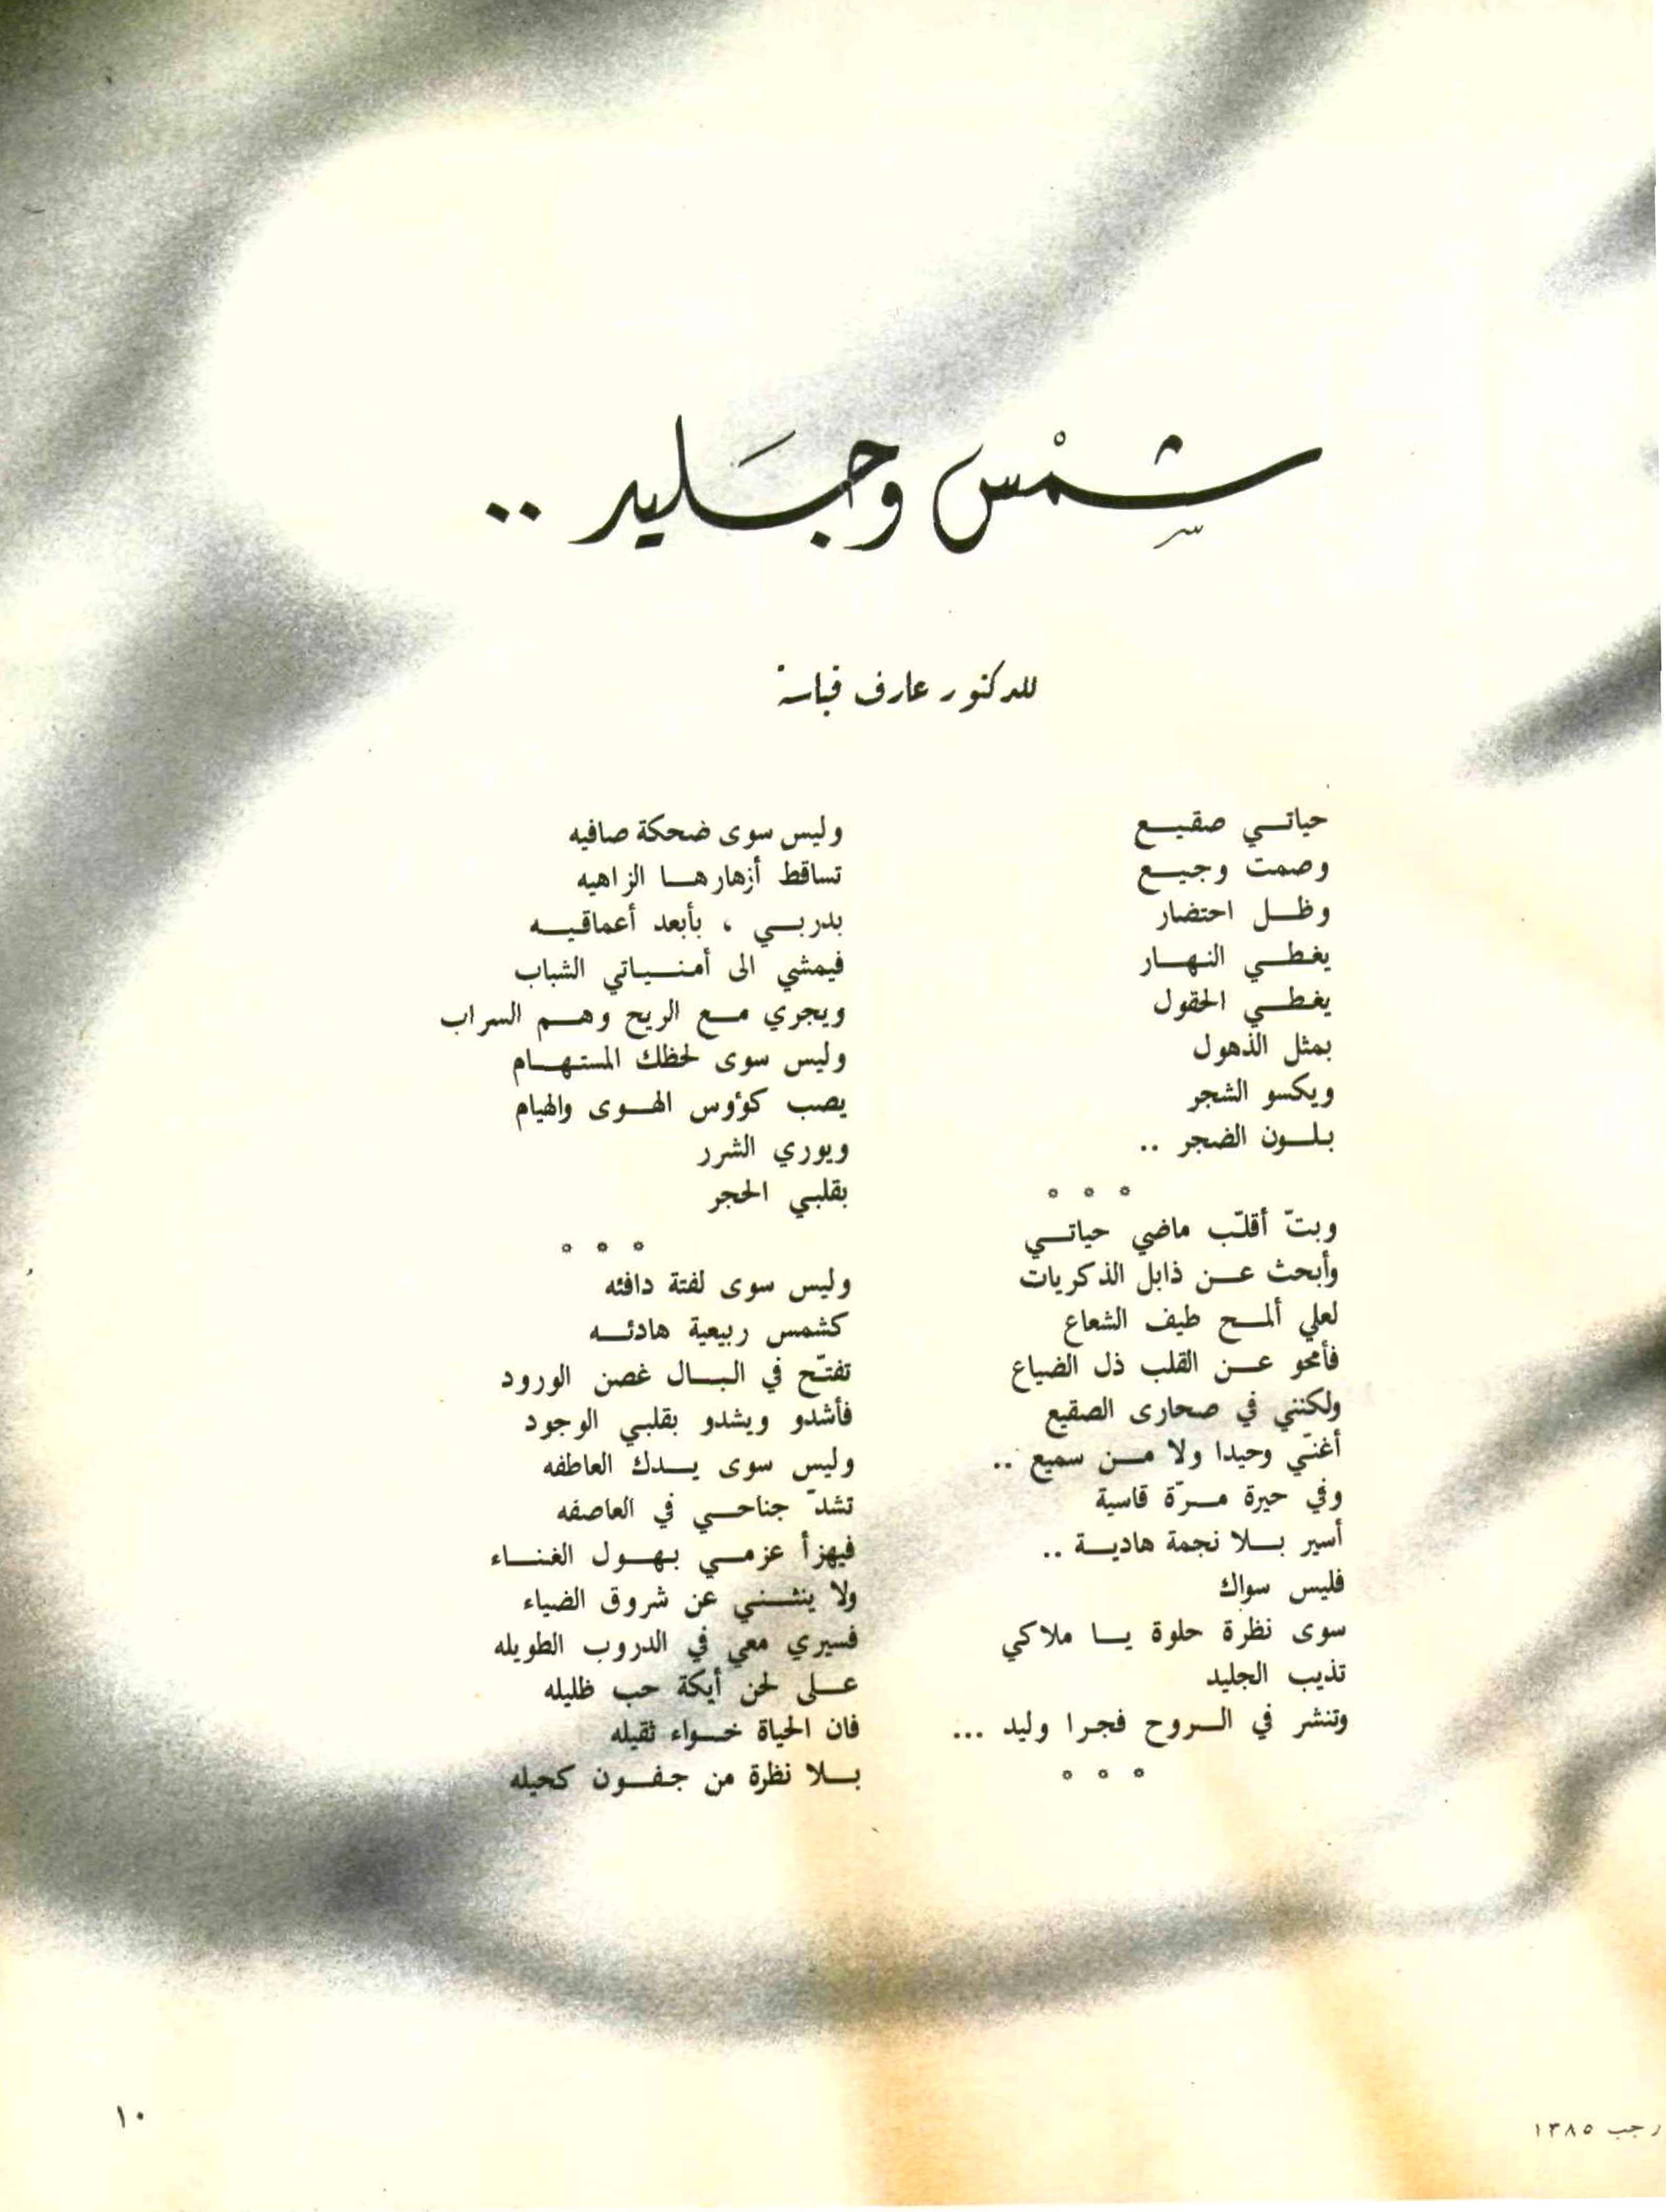 شمس وجليد ..
للدكتور عارف قياسة
حياتي صقيع
وصمت وجيع
وظل احتضار
يغطي النهار
يغطي الحقول
بمثل الذهول
ويكسو الشجر
بلون الضجر ..
* * *
وبتّ أقلّب ماضي حياتي
وأبحث عن ذابل الذكريات
لعلي ألمح طيف الشعاع
فأمحو عن القلب ذل الضياع
ولكنني في صحارى الصقيع
أغنّي وحيدا ولا من سميع ..
وفي حيرة مرّة قاسية
أسير بلا نجمة هادية ..
فليس سواك
سوى نظرة حلوة يا ملاكي
تذيب الجليد
وتنشر في الروح فجرا وليد ...
* * *
وليس سوى ضحكة صافيه
تساقط أزهارها الزاهيه
بدربي ، بأبعد أعماقيه
فيمشي الى أمنياتي الشباب
ويجري مع الريح وهم السراب
وليس سوى لحظك المستهام
يصب كؤوس الهوى والهيام
ويوري الشرر
بقلبي الحجر
* * *
وليس سوى لفتة دافئه
كشمس ربيعية هادئه
تفتّح في البال غصن الورود
فأشدو ويشدو بقلبي الوجود
وليس سوى يدك العاطفه
تشدّ جناحي في العاصفه
فيهزأ عزمي بهول الغناء
ولا ينثني عن شروق الضياء
فسيري معي في الدروب الطويله
على لحن أيكة حب ظليله
فان الحياة خواء ثقيله
بلا نظرة من جفون كحيله
رجب ١٣٨٥
١٠